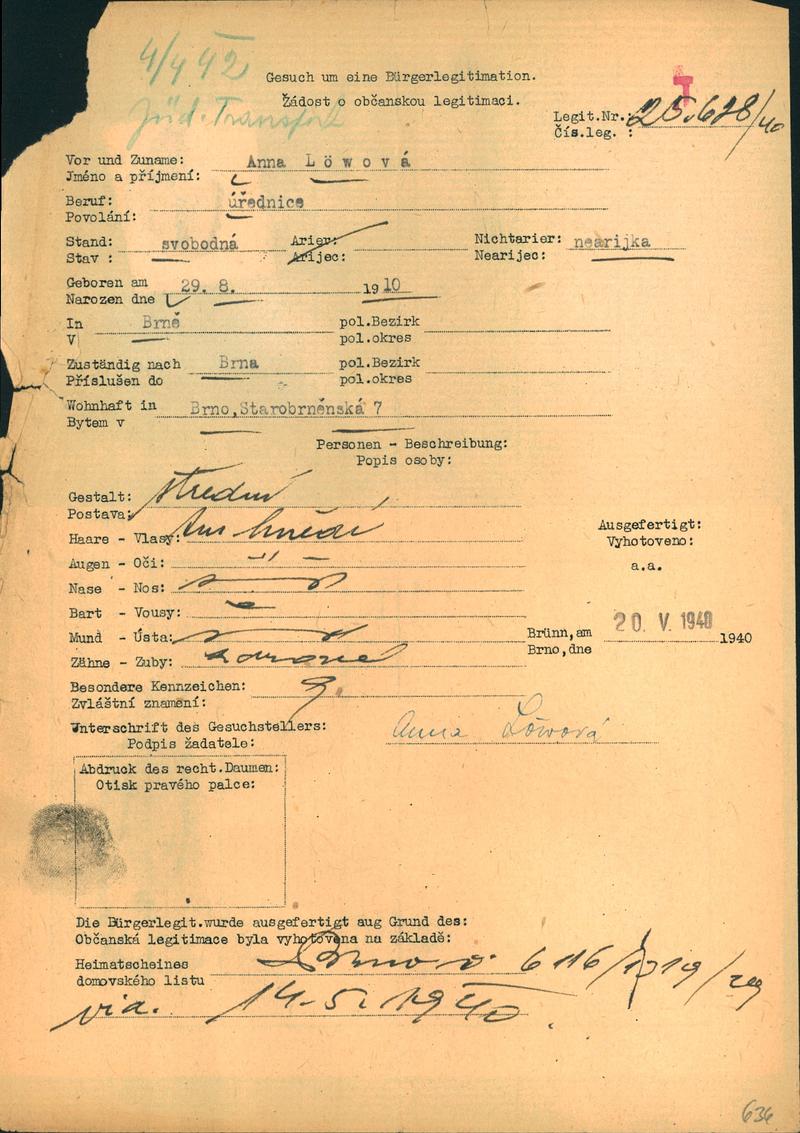 4/4 42
Jüd. Transport
Gesuch um eine Bürgerlegitimation.
Žádost o občanskou legitimaci.
T
Legit.Nr.: 25.628/40
Čís.leg. :
Vor und Zuname: Anna Löwová
Jméno a příjmení:
Beruf: úřednice
Povolání:
Stand: svobodná Arier: Nichtarier: nearijka
Stav : Arijec: Nearijec:
Geboren am 29. 8. 1910
Narozen dne
In Brně pol.Bezirk
V pol.okres
Zuständig nach Brna pol.Bezirk
Příslušen do pol.okres
Wohnhaft in Brno,Starobrněnská 7
Bytem v
Personen - Beschreibung:
Popis osoby:
Gestalt: střední
Postava:
Haare - Vlasy: tm hnědé
Augen - Oči: " -
Nase - Nos:
Bart - Vousy:
Mund - Ústa:
Zähne - Zuby: zdravé
Ausgefertigt:
Vyhotoveno:
a.a.
Brünn,am 20. V. 1940 1940
Brno,dne
Besondere Kennzeichen:
Zvláštní znamení:
Unterschrift des Gesuchstellers: Anna Löwová
Podpis žadatele:
Abdruck des recht.Daumen:
Otisk pravého palce:
Die Bürgerlegit.wurde ausgefertigt aug Grund des:
Občanská legitimace byla vyhotovena na základě:
Heimatscheines Brno
domovského listu
14.5.1940
636